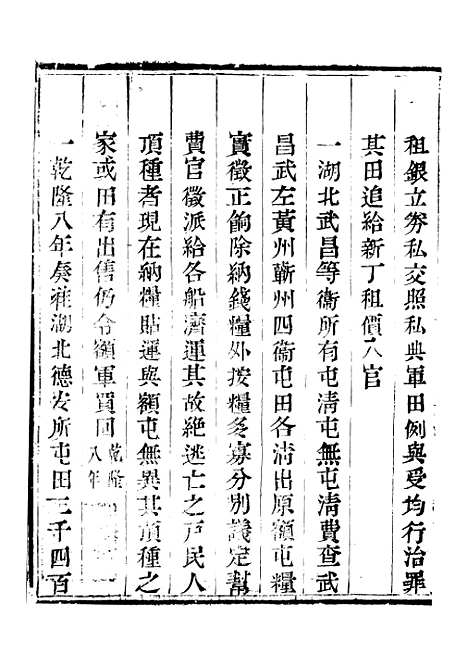 租銀立劵私交照私典軍田例與受均行治罪
其田追給新丁租價入官
一湖北武昌等衞所有屯淸屯無屯淸費查武
昌武左黃州蘄州四衞屯田各淸出原額屯糧
實徵正餉除納錢糧外按糧多寡分别議定幫
費官徵派給各船濟運其故絶逃亡之戸民人
頂種者現在納糧貼運與額屯無異其頂種之
家或田有出售仍令額軍買回乾隆八年
一乾隆八年奏准湖北德安所屯田三千四百